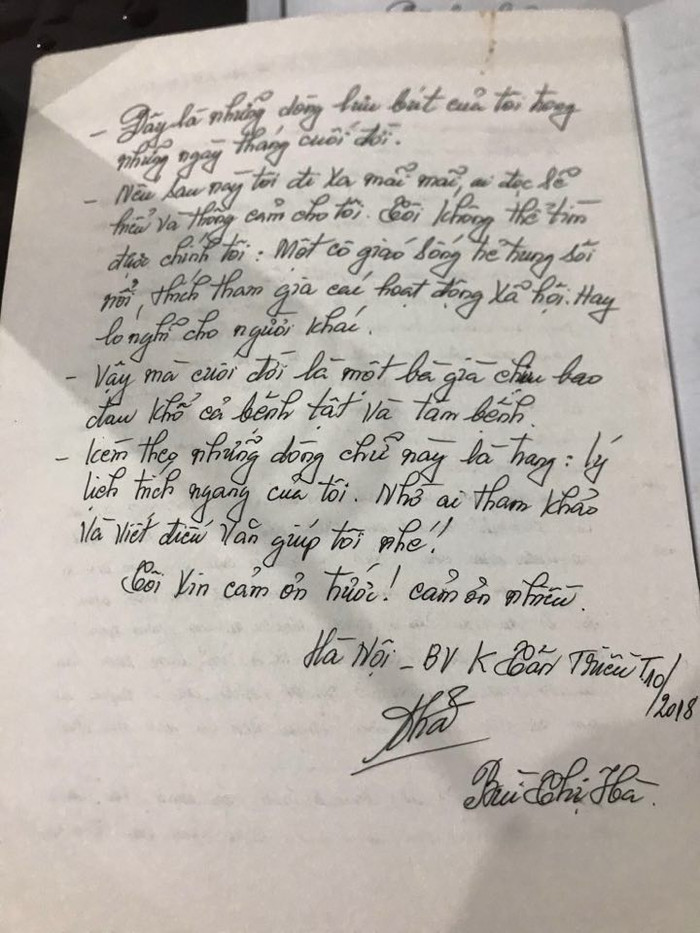 - Đây là những dòng lưu bút của tôi trong
những ngày tháng cuối đời.
- Nếu sau này tôi đi xa mãi mãi, ai đọc sẽ
hiểu và thông cảm cho tôi. Tôi không thể tìm
được chính tôi: Một cô giáo sống trẻ trung sôi
nổi, thích tham gia các hoạt động xã hội. Hay
lo nghĩ cho người khác.
- Vậy mà cuối đời là một bà già chịu bao
đau khổ cả bệnh tật và tâm bệnh.
- Kèm theo những dòng chữ này là trang: lý
lịch trích ngang của tôi. Nhờ ai tham khảo
và viết điếu văn giúp tôi nhé!
Tôi xin cảm ơn trước! cảm ơn nhiều.
Hà Nội - BV K Tân Triều T10/
2018
Hà
Bùi Thị Hà.